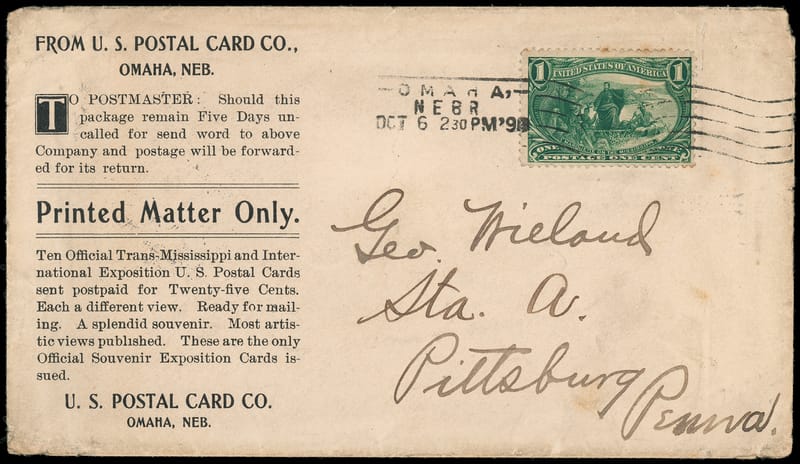 FROM U. S. POSTAL CARD CO.,
OMAHA, NEB.
TO POSTMASTER: Should this
package remain Five Days un-
called for send word to above
Company and postage will be forward-
ed for its return.
Printed Matter Only.
Ten Official Trans-Mississippi and Inter-
national Exposition U. S. Postal Cards
sent postpaid for Twenty-five Cents.
Each a different view. Ready for mail-
ing. A splendid souvenir. Most artis-
tic views published. These are the only
Official Souvenir Exposition Cards is-
sued.
U. S. POSTAL CARD CO.
OMAHA, NEB.
OMAHA,
NEBR
OCT 6 230PM '98
1 UNITED STATES OF AMERICA 1
POSTAGE ONE CENT
Geo. Wieland
Sta. A.
Pittsburg
Penna.